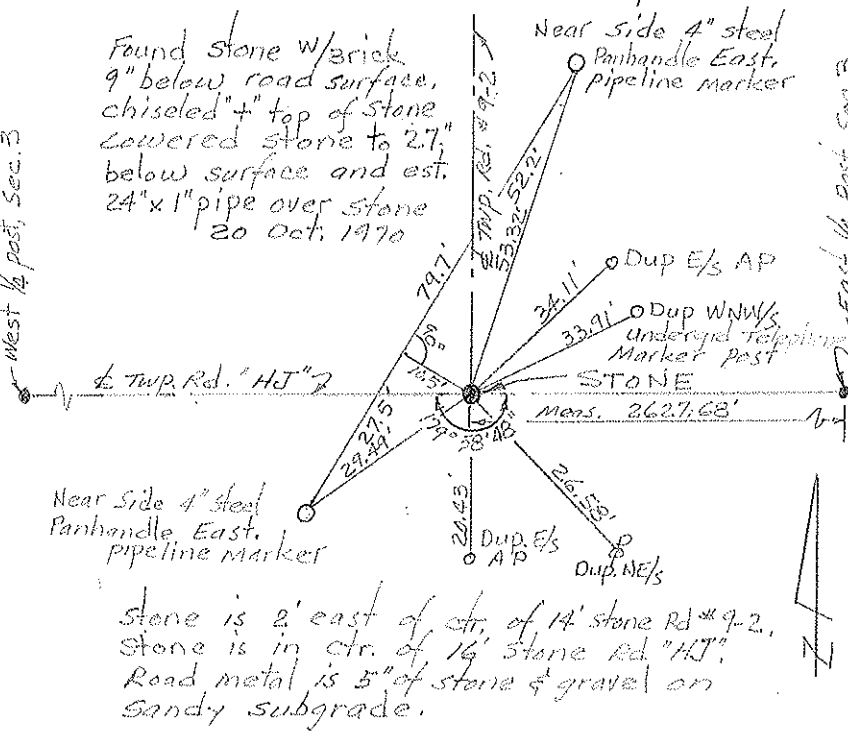 Found stone W/Brick
9" below road surface.
chiseled "+" top of stone
Lowered stone to 27"
below surface and est.
24" x 1" pipe over stone
20 Oct. 1970
Near Side 4" steel
Panhandle East.
pipeline marker
West 1/4 post, Sec. 3
East 1/4 Post Sec. 3
℄ Twp. Rd. #9-2
53.32'
52.2'
79.7'
34.11'
Dup E/s AP
33.91'
Dup WNW/s
undergrd Telephone
Marker Post
℄ Twp. Rd. "HJ"
10.5'
STONE
Meas. 2627.68'
27.5'
29.49'
179° 58' 48"
Near Side 4" steel
Panhandle East.
pipeline marker
20.43'
Dup. E/s
AP
26.58'
Dup. NE/s
PP
N
Stone is 2' east of ctr. of 14' stone Rd #9-2.
Stone is in ctr. of 16' stone Rd. "HJ".
Road metal is 5" of stone & gravel on
Sandy subgrade.